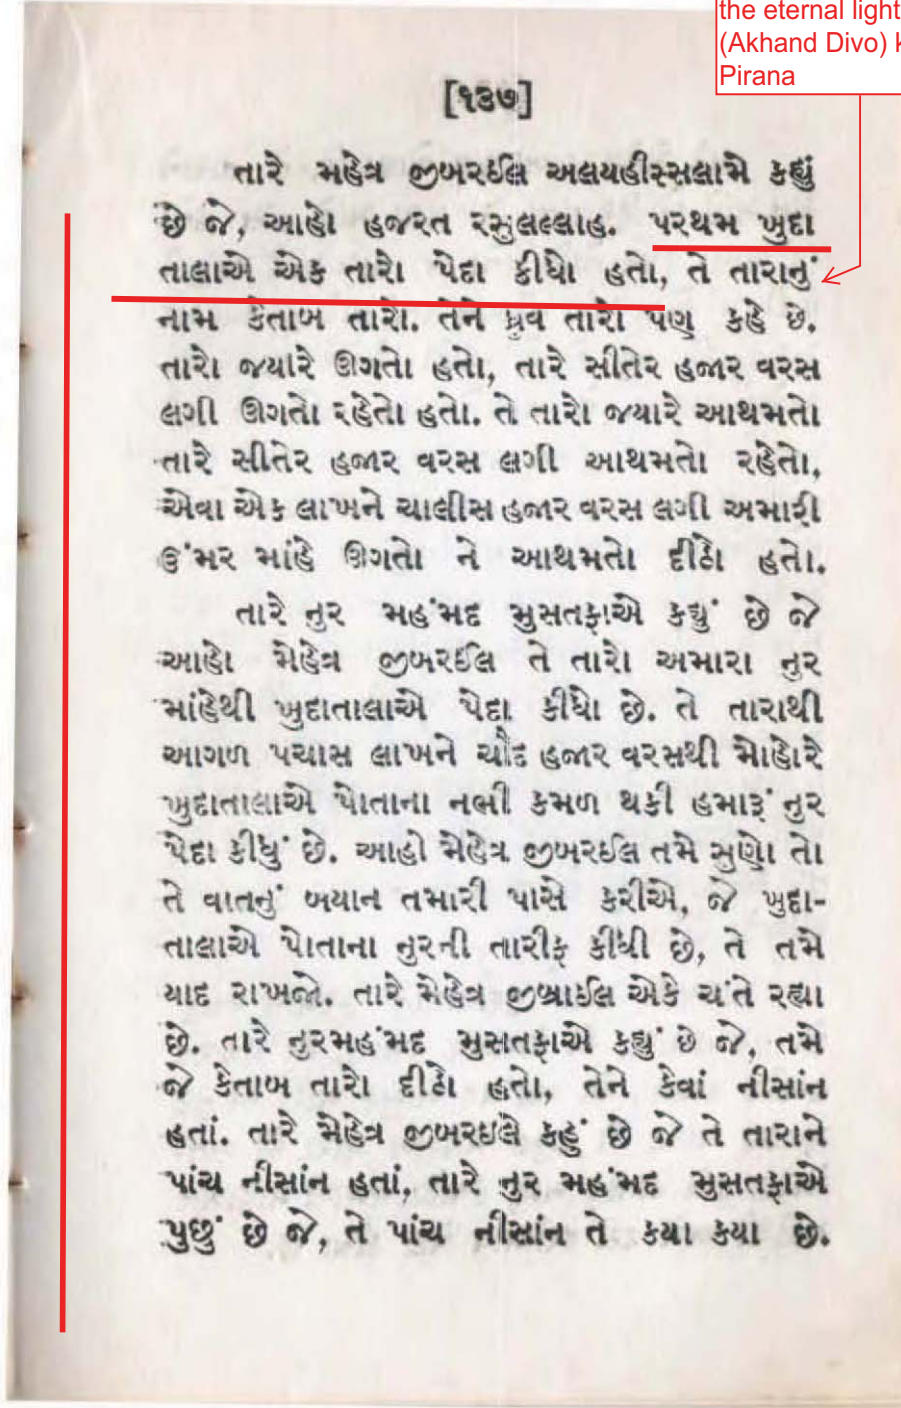 the eternal light
(Akhand Divo)
Pirana
[૧૩૭]
તારે મહેત્ર જીબરઈલ અલયહીસ્સલામે કહ્યું
છે જે, આહો હજરત રસુલલ્લાહ. પરથમ ખુદા
તાલાએ એક તારો પેદા કીધો હતો, તે તારાનું
નામ કેતાબ તારો. તેને ધ્રુવ તારો પણ કહે છે.
તારો જયારે ઊગતો હતો, તારે સીતેર હજાર વરસ
લગી ઊગતો રહેતો હતો. તે તારો જયારે આથમતો
તારે સીતેર હજાર વરસ લગી આથમતો રહેતો,
એવા એક લાખને ચાલીસ હજાર વરસ લગી અમારી
ઉંમર માંહે ઊગતો ને આથમતો દીઠો હતો.
તારે નુર મહંમદ મુસતફાએ કહ્યું છે જે
આહો મેહેત્ર જીબરઈલ તે તારો અમારા નુર
માંહેથી ખુદાતાલાએ પેદા કીધો છે. તે તારાથી
આગળ પચાસ લાખને ચૌદ હજાર વરસથી મોહોરે
ખુદાતાલાએ પોતાના નભી કમળ થકી હમારૂં નુર
પેદા કીધું છે. આહો મેહેત્ર જીબરઈલ તમે સુણો તો
તે વાતનું બયાન તમારી પાસે કરીએ, જે ખુદા-
તાલાએ પોતાના નુરની તારીફ કીધી છે, તે તમે
યાદ રાખજો. તારે મેહેત્ર જીબ્રાઈલ એકે ચંતે રહ્યા
છે. તારે નુરમહંમદ મુસતફાએ કહ્યું છે જે, તમે
જે કેતાબ તારો દીઠો હતો, તેને કેવાં નીસાંન
હતાં. તારે મેહેત્ર જીબરઇલે કહું છે જે તે તારાને
પાંચ નીસાંન હતાં, તારે નુર મહંમદ મુસતફાએ
પુછું છે જે, તે પાંચ નીસાંન તે કયા કયા છે.